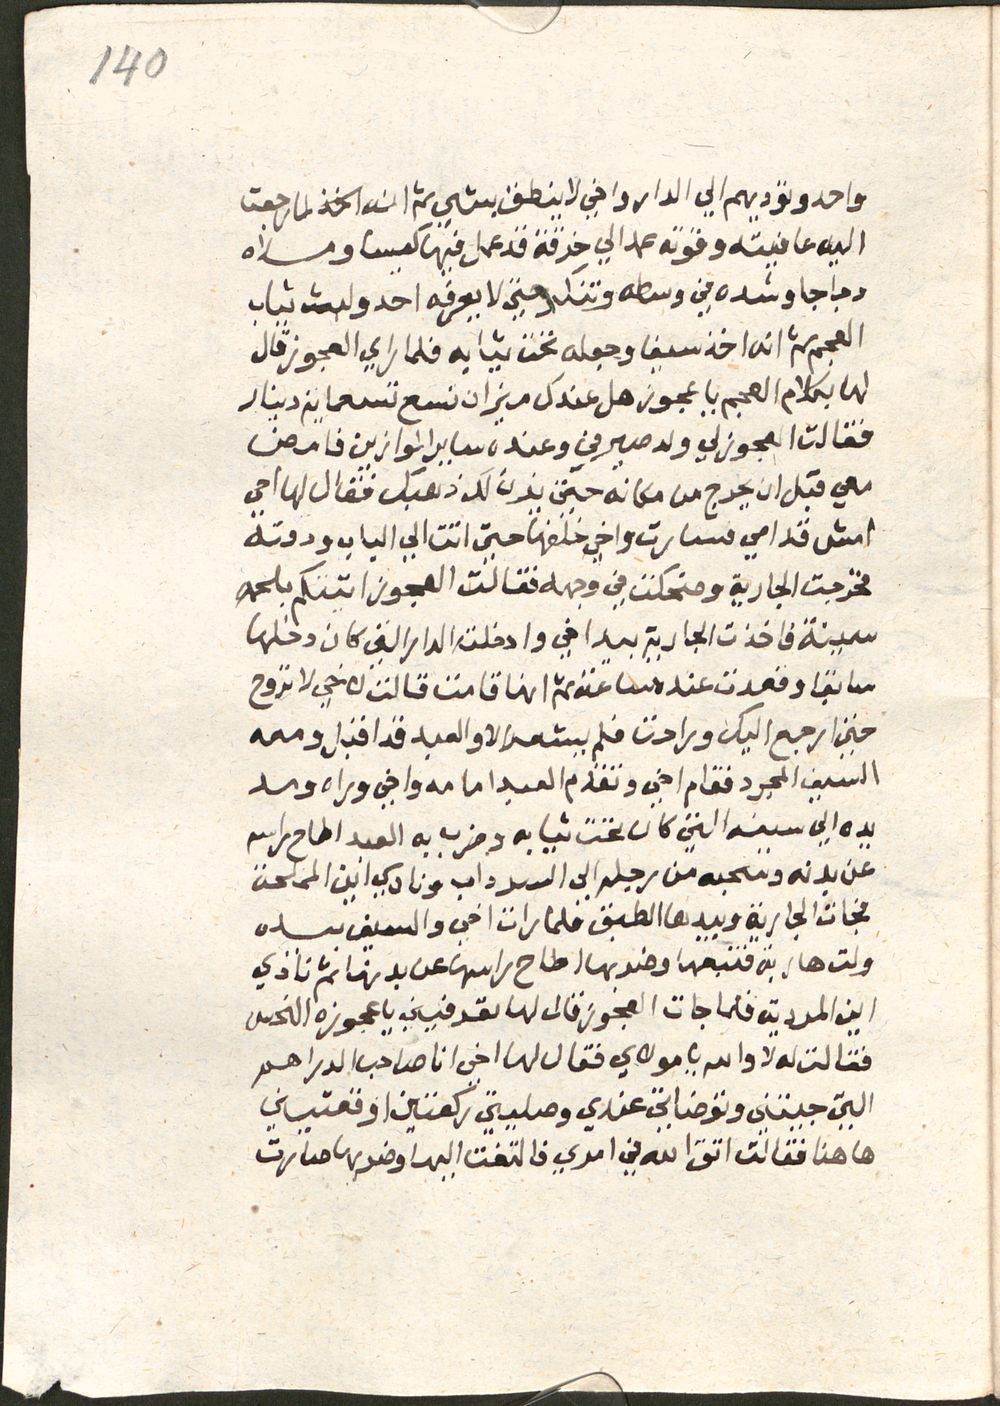 140
واحد وتوديهم الي الدار واخي لا ينطق بشي ثم انه اخذ لما رجعت
اليه عافيته وقوته عمد الي خرقة قد عمل فيها كيسا وملاه
دجاجا وشده في وسطه وتنكر حتي لا يعرفه احد ولبس ثياب
العجم ثم انه اخذ سيفا وجعله تحت ثيابه فلما راي العجوز قال
لها بكلام العجم يا عجوز هل عندك ميزان تسع تسعماية دينار
فقالت العجوز لي ولد صيرفي وعنده ساير الموازين فامض
معي قبل ان يخرج من مكانه حتي يزن لك ذهبك فقال لها اخي
امش قدامي فسارت واخي خلفها حتي اتت الي الباب ودقته
فخرجت الجارية وضحكت في وجهه فقالت العجوز اتيتكم بلحمة
سمينة فاخذت الجارية بيد اخي وادخلته الدار التي كان دخلها
سابقا وقعدت عنده ساعة ثم انها قامت قالت لاخي لا تروح
حتي ارجع اليك وراحت فلم يشعر الا والعبد قد اقبل ومعه
السيف المجرد فقام اخي وتقدم العبد امامه واخي وراه ومد
يده الي سيفه التي كان تحت ثيابه وضرب به العبد اطاح راسه
عن بدنه وسحبه من رجليه الي السرداب ونادي اين المملحة
فجات الجارية وبيدها الطبق فلما رات اخي والسيف بيده
ولت هاربة فتبعها وضربها اطاح راسها عن بدنها ثم نادي
اين المردية فلما جات العجوز قال لها تعرفيني يا عجوزة النحس
فقالت له لا والله يا مولاي فقال لها اخي انا صاحب الدراهم
التي جيتني وتوضاتي عندي وصليتي ركعتين اوقعتيني
هاهنا فقالت اتق الله في امري فالتفت اليها وضربها صارت